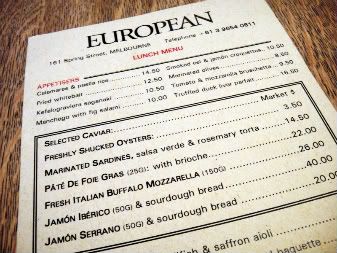 EUROPEAN
161 Spring Street, MELBOURNE Telephone +61 3 9654 0811
LUNCH MENU
APPETISERS
Calamares & pasta rice 14.50
Fried whitebait 12.50
Kefalograviera saganaki 10.50
Manchego with fig salami 10.00
Smoked eel & jamón croquettes 10.50
Marinated olives
Tomato & mozzarella bruschetta
Truffled duck liver parfait 16.00
SELECTED CAVIAR: Market $
FRESHLY SHUCKED OYSTERS: 3.50
MARINATED SARDINES, salsa verde & rosemary torta 14.50
PÂTÉ DE FOIE GRAS (25G): with brioche 22.00
FRESH ITALIAN BUFFALO MOZZARELLA (150G)
JAMÓN IBÉRICO (50G) & sourdough bread 40.00
JAMÓN SERRANO (50G) & sourdough bread 20.00
& saffron aioli
baguette